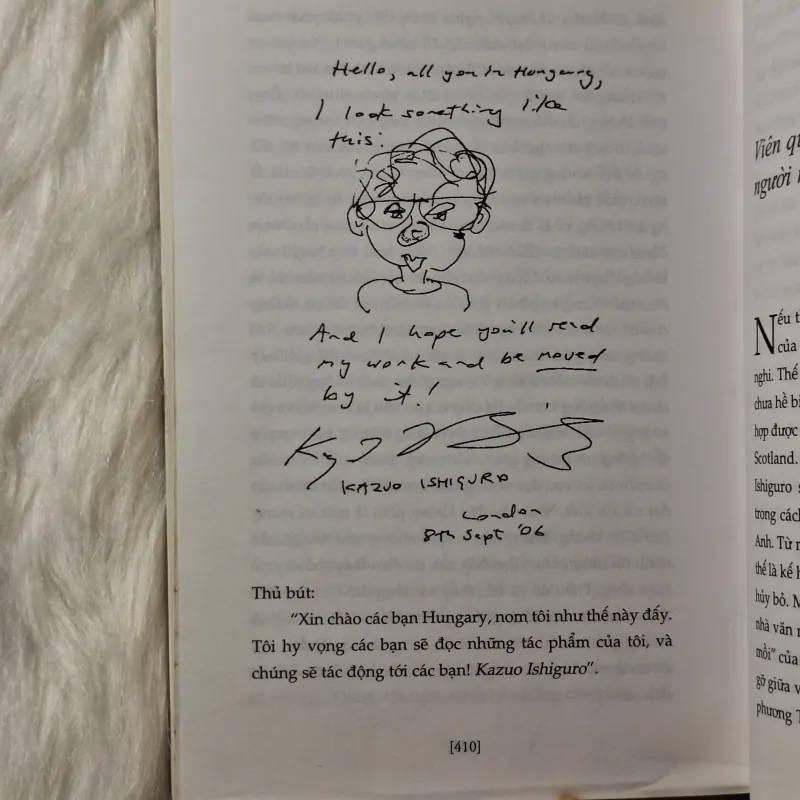 Hello, all you in Hungary,
I look something like
this:
And I hope you'll read
my work and be moved
by it!
KAZUO ISHIGURO
London
8th Sept '06
Thủ bút:
“Xin chào các bạn Hungary, nom tôi như thế này đấy.
Tôi hy vọng các bạn sẽ đọc những tác phẩm của tôi, và
chúng sẽ tác động tới các bạn! Kazuo Ishiguro”.
[410]
Viên
người
Nếu
của
nghi. Thế
chưa hề
hợp được
Scotland.
Ishiguro
trong
Anh. Từ
thế là kế
hủy bỏ.
nhà văn
mồi” của
gỡ giữa
phương